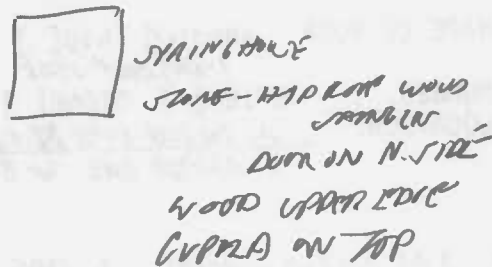 SPRINGHOUSE
STONE - HIP ROOF WOOD
SHINGLES
DOOR ON N. SIDE
WOOD UPPER EDGE
CUPOLA ON TOP